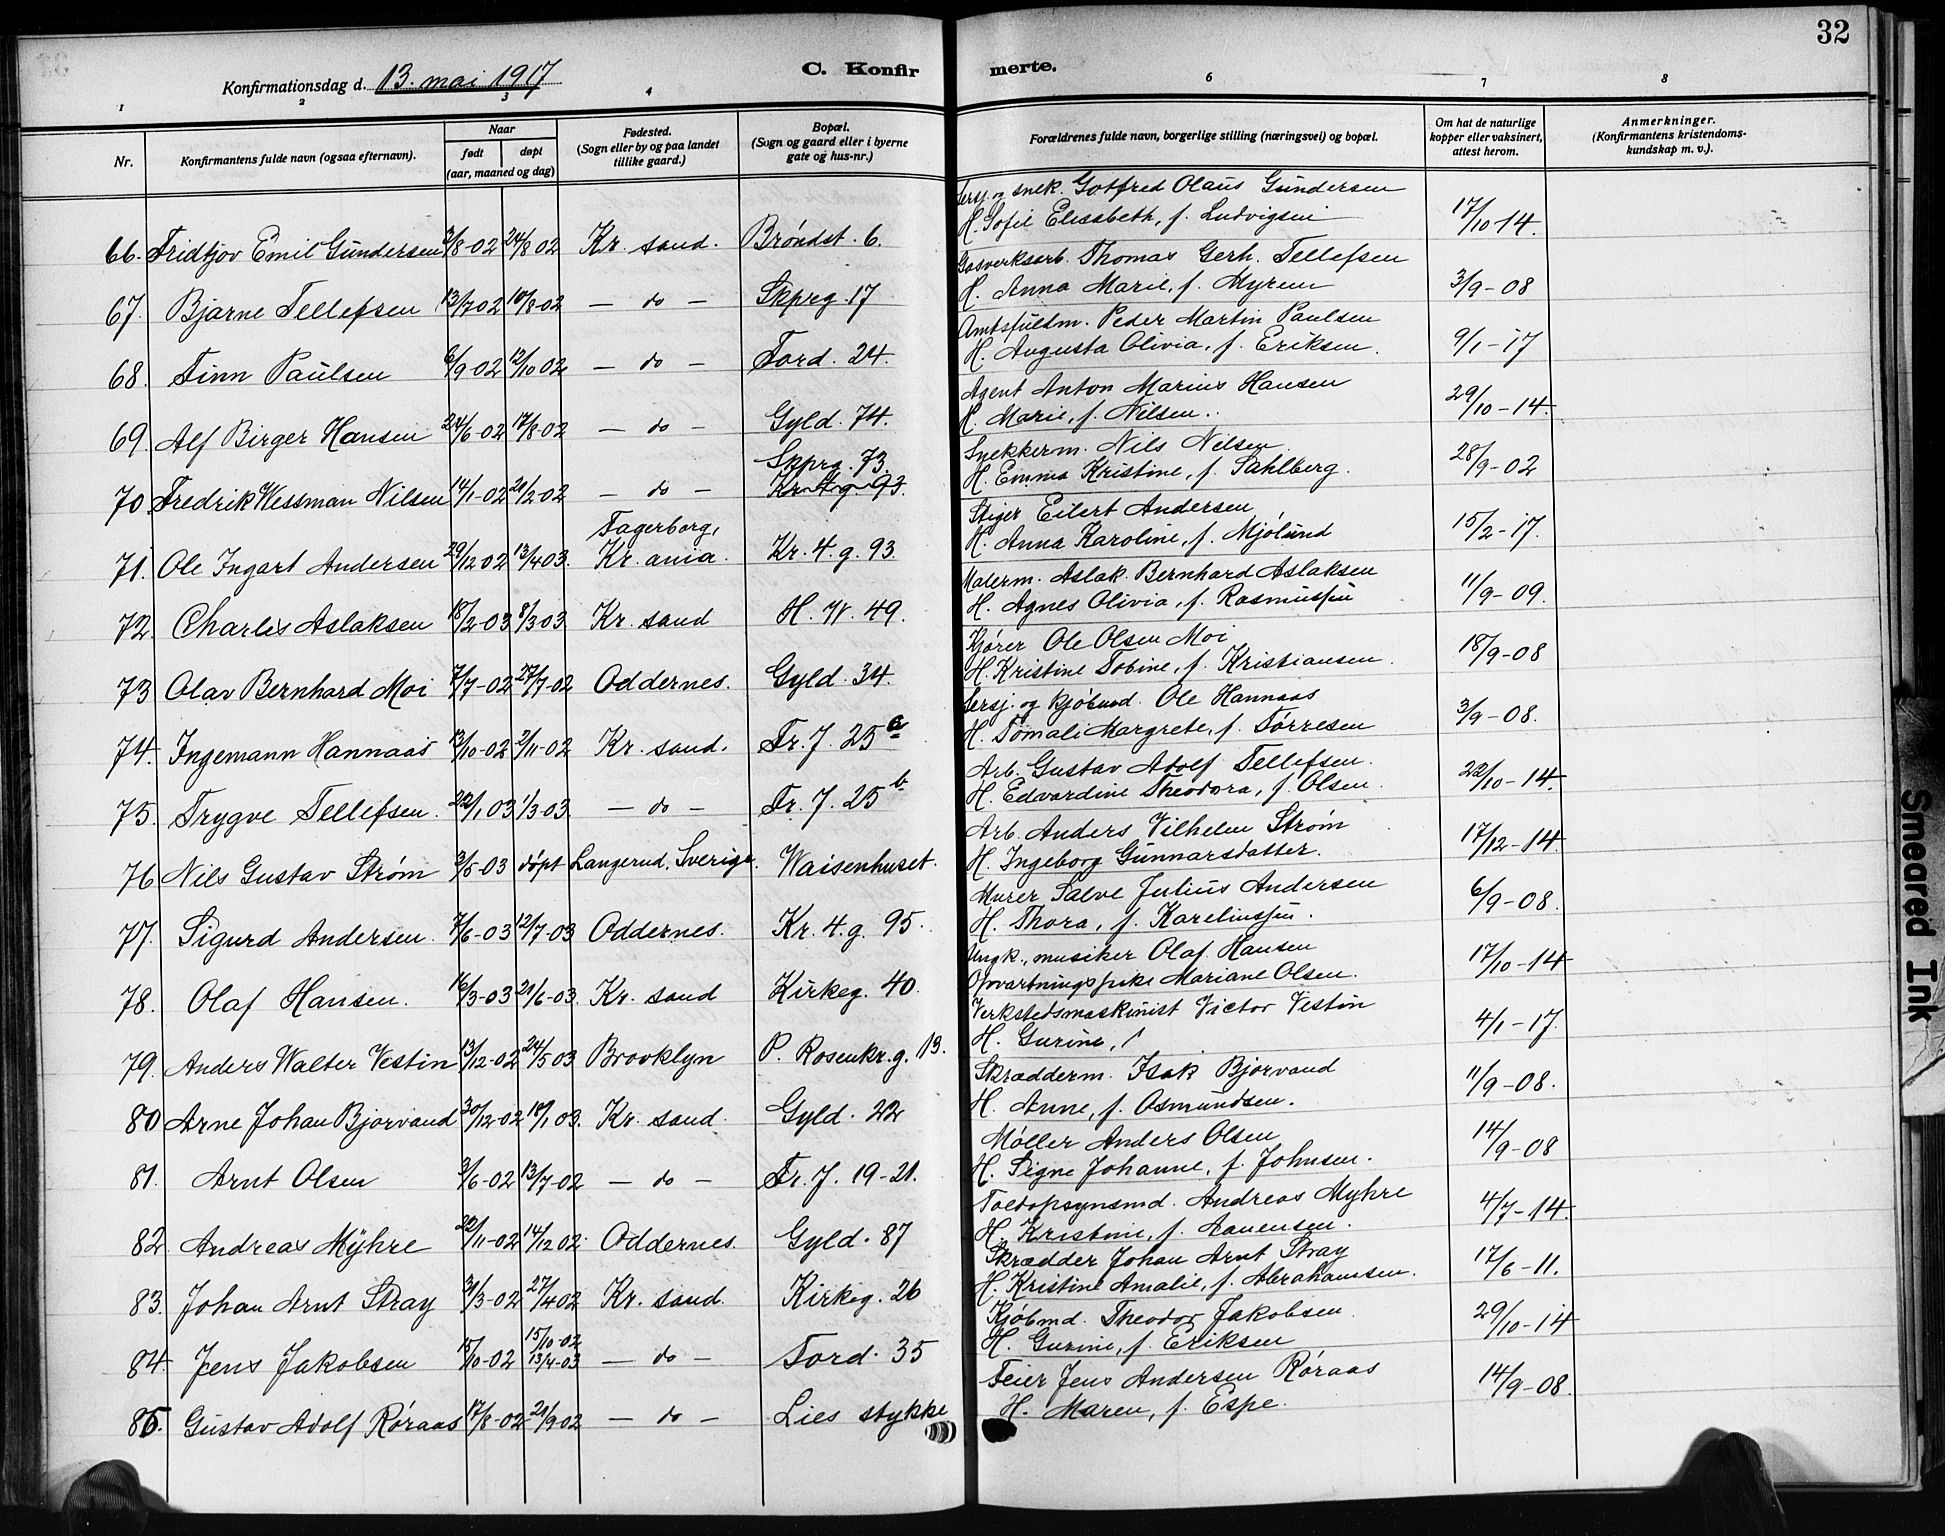 32
Konfirmationsdag d. 13. mai 1917
C. Konfirmerte.
1 2 3 4 6 7 8
Nr.
Konfirmantens fulde navn (ogsaa efternavn).
Naar
født døpt
(aar, maaned og dag)
Fødested.
(Sogn eller by og paa landet
tillike gaard.)
Bopæl.
(Sogn og gaard eller i byerne
gate og hus-nr.)
Forældrenes fulde navn, borgerlige stilling (næringsvei) og bopæl.
Om hat de naturlige
kopper eller vaksinert,
attest herom.
Anmerkninger.
(Konfirmantens kristendoms-
kundskap m. v.).
Sersj. og snek. Gotfred Olaus Gundersen
66. Fridtjov Emil Gundersen 3/8-02 24/8 02 Kr. sand. Brøndst. 6. H. Sofie Elisabeth, f. Ludvigsen 17/10 14.
Gasverksarb. Thomas Gerh. Tellefsen
67. Bjarne Tellefsen 13/7 02 10/8-02 — do — Skprg. 17 H. Anna Marie, f. Myren 3/9-08
Amtsfuldm. Peder Martin Paulsen
68. Finn Paulsen 6/9-02 12/10 02 — do — Tord. 24. H. Augusta Olivia, f. Eriksen. 9/1-17
Agent Anton Marius Hansen
69. Alf Birger Hansen 24/6-02 17/8-02 — do — Gyld. 74. H. Marie, f. Nilsen. 29/10-14.
Skprg. 73. Snekkerm. Nils Nilsen
70. Fredrik Wessman Nilsen 14/1-02 21/2-02 — do — Kr. 4. g. 93. H. Emma Kristine, f. Sahlberg. 28/9-02
Fagerborg, Stiger Eilert Andersen
71. Ole Ingart Andersen 29/12 02 13/4 03. Kr. ania. Kr. 4. g. 93. H. Anna Karoline, f. Mjølund 15/2-17.
Malerm. Aslak Bernhard Aslaksen
72 Charles Aslaksen 18/2-03 8/3 03 Kr. sand H. W. 49. H. Agnes Olivia, f. Rasmussen 11/9-09.
Kjører Ole Olsen Moi
73 Olav Bernhard Moi 7/7-02 27/7-02 Oddernes. Gyld. 34. H. Kristine Tobine, f. Kristiansen. 18/9-08
Sersj. og kjøbmd. Ole Hannaas
74. Ingemann Hannaas 13/10-02 2/11-02 Kr. sand. Fr. 7. 25 a H. Tomali Margrete, f. Tørresen 3/9-08.
Arb. Gustav Adolf Tellefsen.
75. Trygve Tellefsen. 22/1 03 1/3-03 — do — Fr. 7. 25 b H. Edvardine Theodora, f. Olsen. 22/10-14.
Arb. Anders Vilhelm Strøm
76 Nils Gustav Strøm 3/5-03 døpt Langerud, Sverige. Waisenhuset. H. Ingeborg Gunnarsdatter. 17/12-14.
Murer Salve Julius Andersen
77. Sigurd Andersen. 7/6-03 12/7-03 Oddernes. Kr. 4. g. 95. H. Thora, f. Karelinssen. 6/9-08.
Ungk., musiker Olaf Hansen
78. Olaf Hansen. 16/3-03 21/6-03. Kr. sand Kirkeg. 40. Opvartningspike Mariane Olsen. 17/10-14
Verkstedsmaskinist Victor Vestin
79. Anders Walter Vestin 13/12-02 24/5 03 Brooklyn P. Rosenkr. g. 13. H. Gurine, / 4/1-17.
Skrædderm. Isak Bjorvand
80 Arne Johan Bjorvand 30/12-02 18/1 03. Kr. sand. Gyld. 22 H. Anne, f. Osmundsen. 11/9-08.
Møller Anders Olsen
81. Arnt Olsen 3/6-02 13/7-02 — do — Fr. 7. 19-21. H. Signe Johanne, f. Johnsen. 14/9-08
Toldopsynsmd. Andreas Myhre
82. Andreas Myhre 22/11-02 14/12 02. Oddernes. Gyld. 87 H. Kristine, f. Aanensen. 4/7-14.
Skrædder Johan Arnt Stray
83. Johan Arnt Stray 31/3-02 27/4 02 Kr. sand. Kirkeg. 26 H. Kristine Amalie, f. Abrahamsen. 17/6-11.
15/10-02 Kjøbmd. Theodor Jakobsen.
84. Jens Jakobsen 15/10-02 13/4-03 — do — Tord. 35 H. Gurine, f. Eriksen 29/10-14
Feier Jens Andersen Røraas
85. Gustav Adolf Røraas 17/8-02 21/9 02 — do — Lies stykke H. Maren, f. Espe. 14/9-08.
Smeared Ink